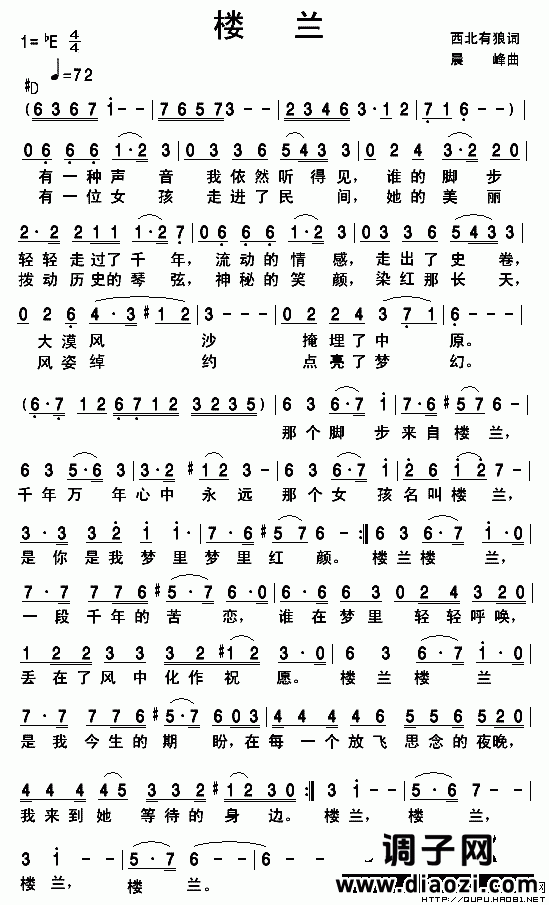 楼 兰
1= ♭E 4/4
西北有狼词
♩=72
晨 峰曲
#D
(6 3 6 7 i - - | 7 6 5 7 3 - - | 2 3 4 6 3·1 2 | 7 1 6 - -)
0 6 6 6 1·2 3 | 0 3 3 3 5 4 3 3 | 0 2 4 3·2 2 0
有 一 种 声 音 我 依 然 听 得 见, 谁 的 脚 步
有 一 位 女 孩 走 进 了 民 间, 她 的 美 丽
2·2 2 1 1 1·2 7 | 0 6 6 6 1·2 3 | 0 3 6 3 5 4 3 3
轻轻 走过了 千 年, 流 动 的 情 感, 走 出 了 史 卷,
拨动 历史的 琴 弦, 神 秘 的 笑 颜, 染 红 那 长 天,
0 2 6 4·3 #1 2 | 3 - - - | 0 2 2 4 3 7 1 | 6 - - -
大 漠 风 沙 掩 埋 了 中 原。
风 姿 绰 约 点 亮 了 梦 幻。
(6·7 1 2 6 7 1 2 3 2 3 5) | 6 3 6·7 i | #5 7 6 6 -
那 个 脚 步 来 自 楼 兰,
6 3 3 5·6 3 | 3·2 3 #1 2 3 - | 6 3 6·7 i | 2 6 i 2 6 -
千 年 万 年 心 中 永 远 那 个 女 孩 名 叫 楼 兰,
3·3 3 2 i i | 7·7 #5 7 6 6 - :‖ 6 3 6·7 | i·0
是 你 是 我 梦 里 梦 里 红 颜。 楼 兰 楼 兰,
7·7 7 7 6 #5·7 | 6·0 | 6·6 6 6 3 0 2 4 3 2 0
一 段 千 年 的 苦 恋, 谁 在 梦 里 轻 轻 呼 唤,
1 2 2 2 3 2 2 #1 2 | 3·0 | 6 3 6·7 | i·0
丢 在 了 风 中 化 作 祝 愿。 楼 兰 楼 兰
7·7 7 7 6 #5·7 6 0 3 | 6·6 6 6 5 5 6 5 6 0
是 我 今 生 的 期 盼, 在 每 一 个 放 飞 思 念 的 夜 晚,
4 4 4 4 5 3 3 2 #1 2 3 0 :‖ 3 i - - | 5·7 6 - -
我 来 到 她 等 待 的 身 边。 楼 兰, 楼 兰,
3 i - - | 5·7 6 - -
楼 兰, 楼 兰。
调子网
www.diaozi.com
HTTP://QUPU.HAO81.NET